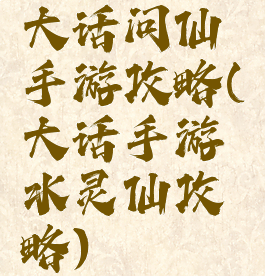 大话问仙
手游攻略(
大话手游
水灵仙攻
略)